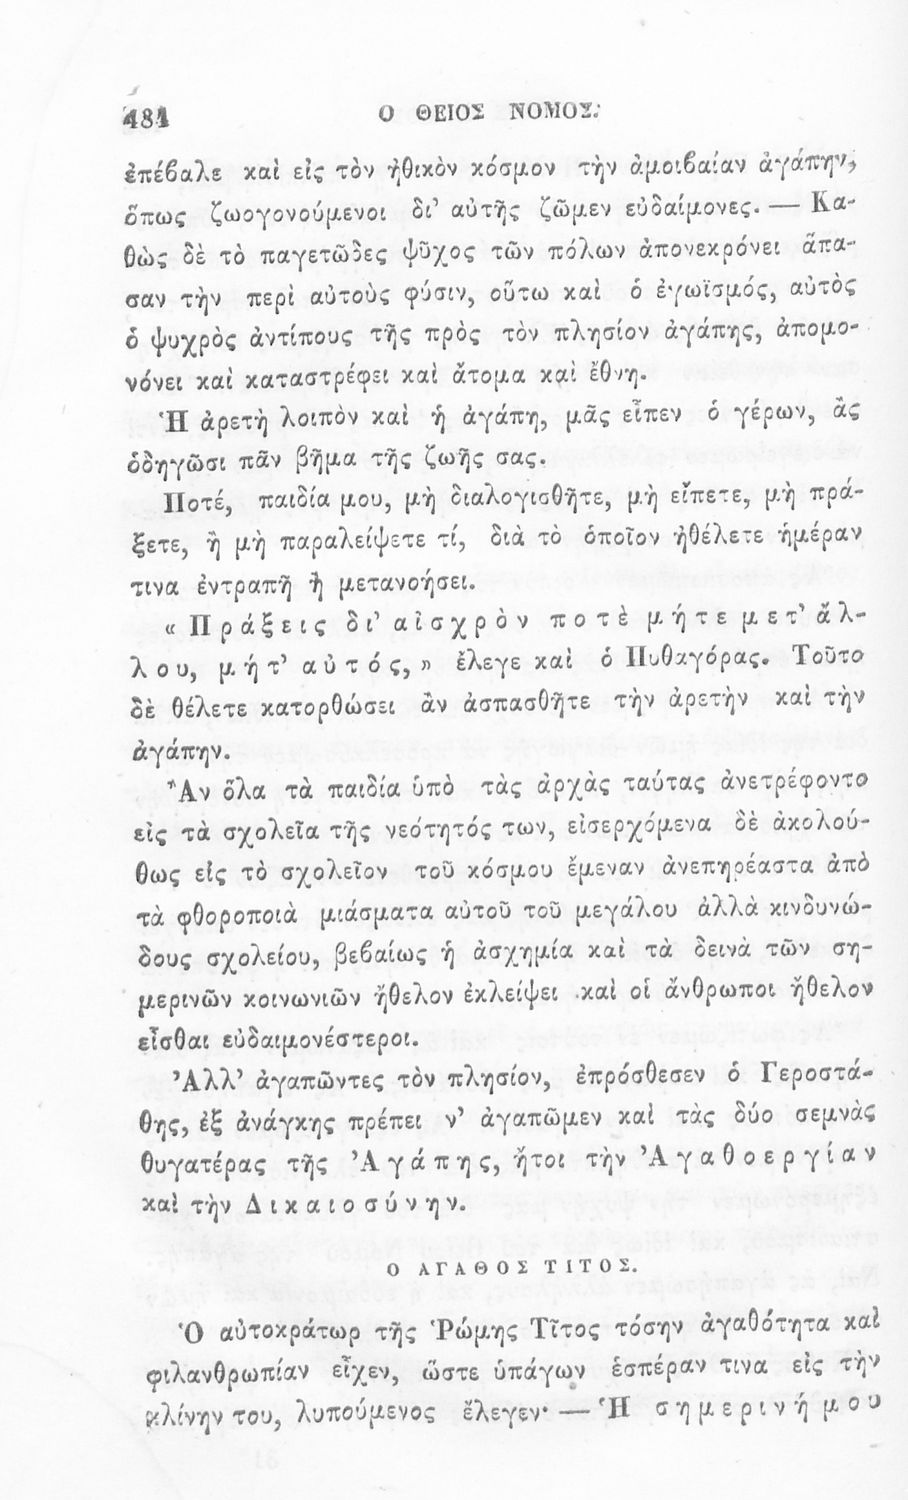 484 Ο ΘΕΙΟΣ ΝΟΜΟΣ.
ἐπέβαλε καὶ εἰς τὸν ἠθικὸν κόσμον τὴν ἀμοιβαίαν ἀγάπην,
ὅπως ζωογονούμενοι δι’ αὐτῆς ζῶμεν εὐδαίμονες. — Κα-
θὼς δὲ τὸ παγετῶδες ψῦχος τῶν πόλων ἀπονεκρόνει ἅπα-
σαν τὴν περὶ αὐτοὺς φύσιν, οὕτω καὶ ὁ ἐγωϊσμός, αὐτὸς
ὁ ψυχρὸς ἀντίπους τῆς πρὸς τὸν πλησίον ἀγάπης, ἀπομο-
νόνει καὶ καταστρέφει καὶ ἄτομα καὶ ἔθνη.
Ἡ ἀρετὴ λοιπὸν καὶ ἡ ἀγάπη, μᾶς εἶπεν ὁ γέρων, ἂς
ὁδηγῶσι πᾶν βῆμα τῆς ζωῆς σας.
Ποτέ, παιδία μου, μὴ διαλογισθῆτε, μὴ εἴπετε, μὴ πρά-
ξετε, ἢ μὴ παραλείψετε τί, διὰ τὸ ὁποῖον ἠθέλετε ἡμέραν
τινα ἐντραπῆ ἢ μετανοήσει.
« Πράξεις δι’ αἰσχρὸν ποτὲ μήτε μετ’ ἄλ-
λου, μήτ’ αὐτός, » ἔλεγε καὶ ὁ Πυθαγόρας. Τοῦτο
δὲ θέλετε κατορθώσει ἂν ἀσπασθῆτε τὴν ἀρετὴν καὶ τὴν
ἀγάπην.
Ἂν ὅλα τὰ παιδία ὑπὸ τὰς ἀρχὰς ταύτας ἀνετρέφοντο
εἰς τὰ σχολεῖα τῆς νεότητός των, εἰσερχόμενα δὲ ἀκολού-
θως εἰς τὸ σχολεῖον τοῦ κόσμου ἔμεναν ἀνεπηρέαστα ἀπὸ
τὰ φθοροποιὰ μιάσματα αὐτοῦ τοῦ μεγάλου ἀλλὰ κινδυνώ-
δους σχολείου, βεβαίως ἡ ἀσχημία καὶ τὰ δεινὰ τῶν ση-
μερινῶν κοινωνιῶν ἤθελον ἐκλείψει καὶ οἱ ἄνθρωποι ἤθελον
εἶσθαι εὐδαιμονέστεροι.
Ἀλλ’ ἀγαπῶντες τὸν πλησίον, ἐπρόσθεσεν ὁ Γεροστά-
θης, ἐξ ἀνάγκης πρέπει ν’ ἀγαπῶμεν καὶ τὰς δύο σεμνὰς
θυγατέρας τῆς Ἀγάπης, ἤτοι τὴν Ἀγαθοεργίαν
καὶ τὴν Δικαιοσύνην.
Ο ΑΓΑΘΟΣ ΤΙΤΟΣ.
Ὁ αὐτοκράτωρ τῆς Ῥώμης Τῖτος τόσην ἀγαθότητα καὶ
φιλανθρωπίαν εἶχεν, ὥστε ὑπάγων ἑσπέραν τινα εἰς τὴν
κλίνην του, λυπούμενος ἔλεγεν· — Ἡ σημερινή μου